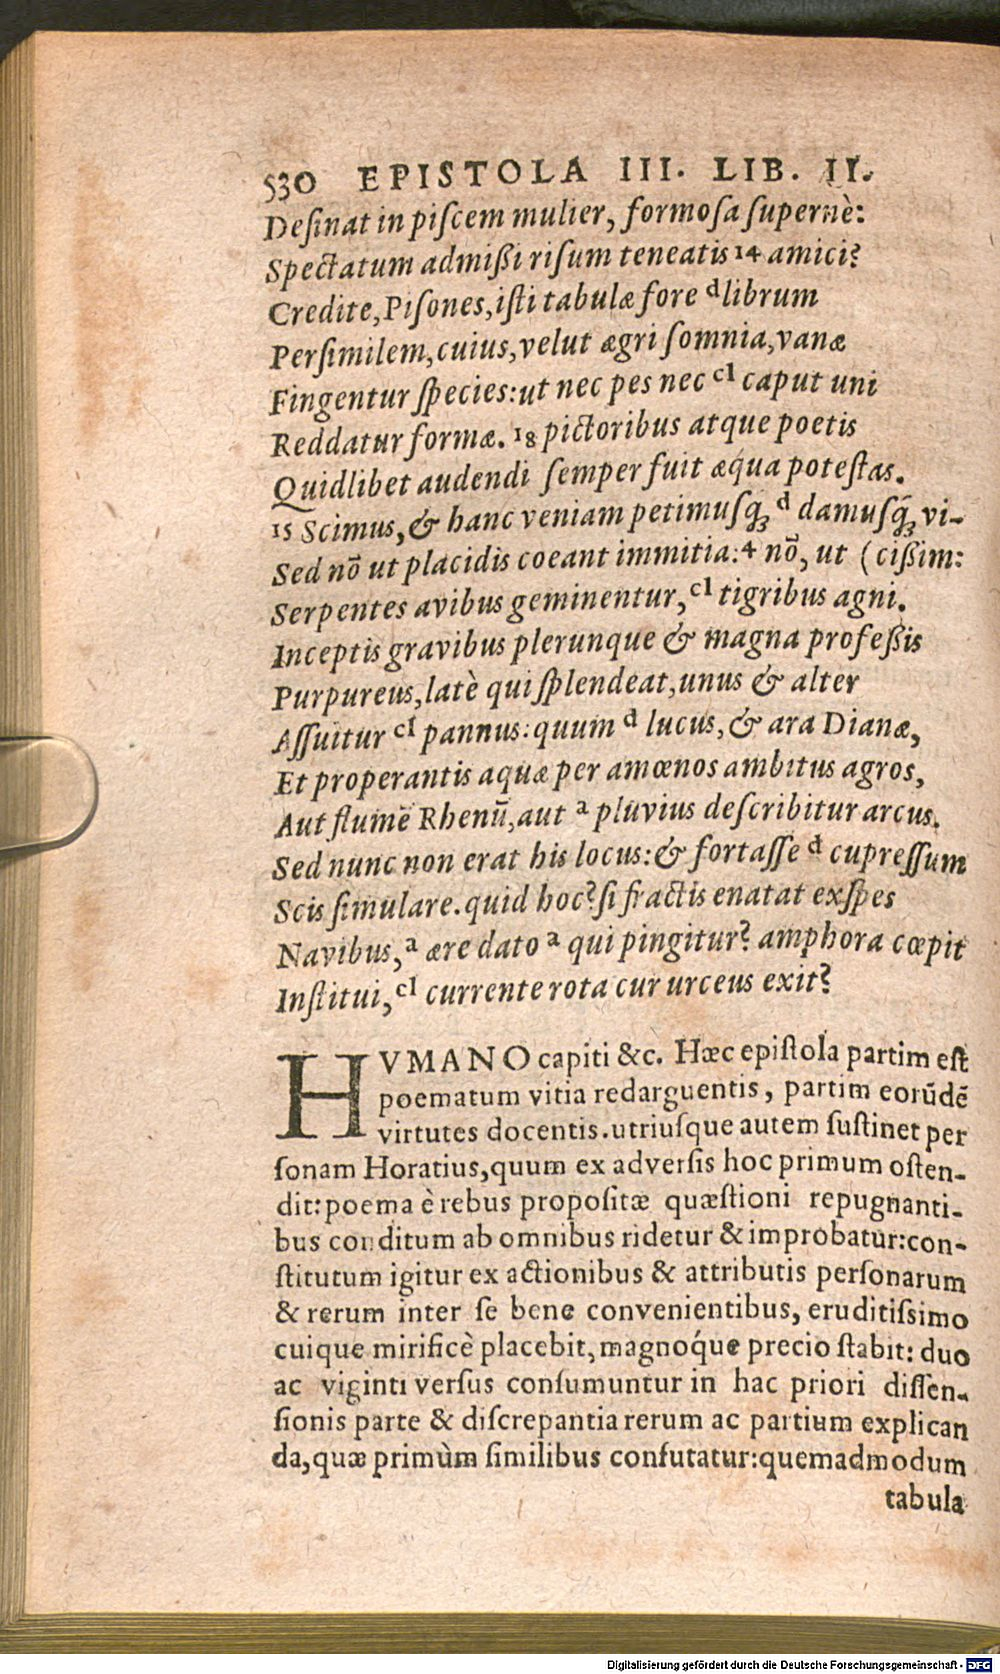 530 EPISTOLA III. LIB. II.
Desinat in piscem mulier, formosa supernè:
Spectatum admißi risum teneatis 14 amici?
Credite, Pisones, isti tabulæ fore d librum
Persimilem, cuius, velut ægri somnia, vanæ
Fingentur species: ut nec pes nec cl caput uni
Reddatur formæ. 18 pictoribus atque poetis
Quidlibet audendi semper fuit æqua potestas.
15 Scimus, & hanc veniam petimusq́ꝫ d damusq́ꝫ vi-
Sed nõ ut placidis coeant immitia: 4 nõ, ut (cißim:
Serpentes avibus geminentur, cl tigribus agni.
Inceptis gravibus plerunque & magna profeßis
Purpureus, latè qui splendeat, unus & alter
Assuitur cl pannus: quum d lucus, & ara Dianæ,
Et properantis aquæ per amœnos ambitus agros,
Aut flumẽ Rhenũ, aut a pluvius describitur arcus.
Sed nunc non erat his locus: & fortasse d cupressum
Scis simulare. quid hoc? si fractis enatat exspes
Navibus, a ære dato a qui pingitur? amphora cœpit
Institui, cl currente rota cur urceus exit?
HVMANO capiti &c. Hæc epistola partim est
poematum vitia redarguentis, partim eorũdẽ
virtutes docentis. utriusque autem sustinet per
sonam Horatius, quum ex adversis hoc primum osten-
dit: poema è rebus propositæ quæstioni repugnanti-
bus conditum ab omnibus ridetur & improbatur: con-
stitutum igitur ex actionibus & attributis personarum
& rerum inter se bene convenientibus, eruditissimo
cuique mirificè placebit, magnoq́ue precio stabit: duo
ac viginti versus consumuntur in hac priori dissen-
sionis parte & discrepantia rerum ac partium explican
da, quæ primùm similibus confutatur: quemadmodum
tabula
Digitalisierung gefördert durch die Deutsche Forschungsgemeinschaft - DFG